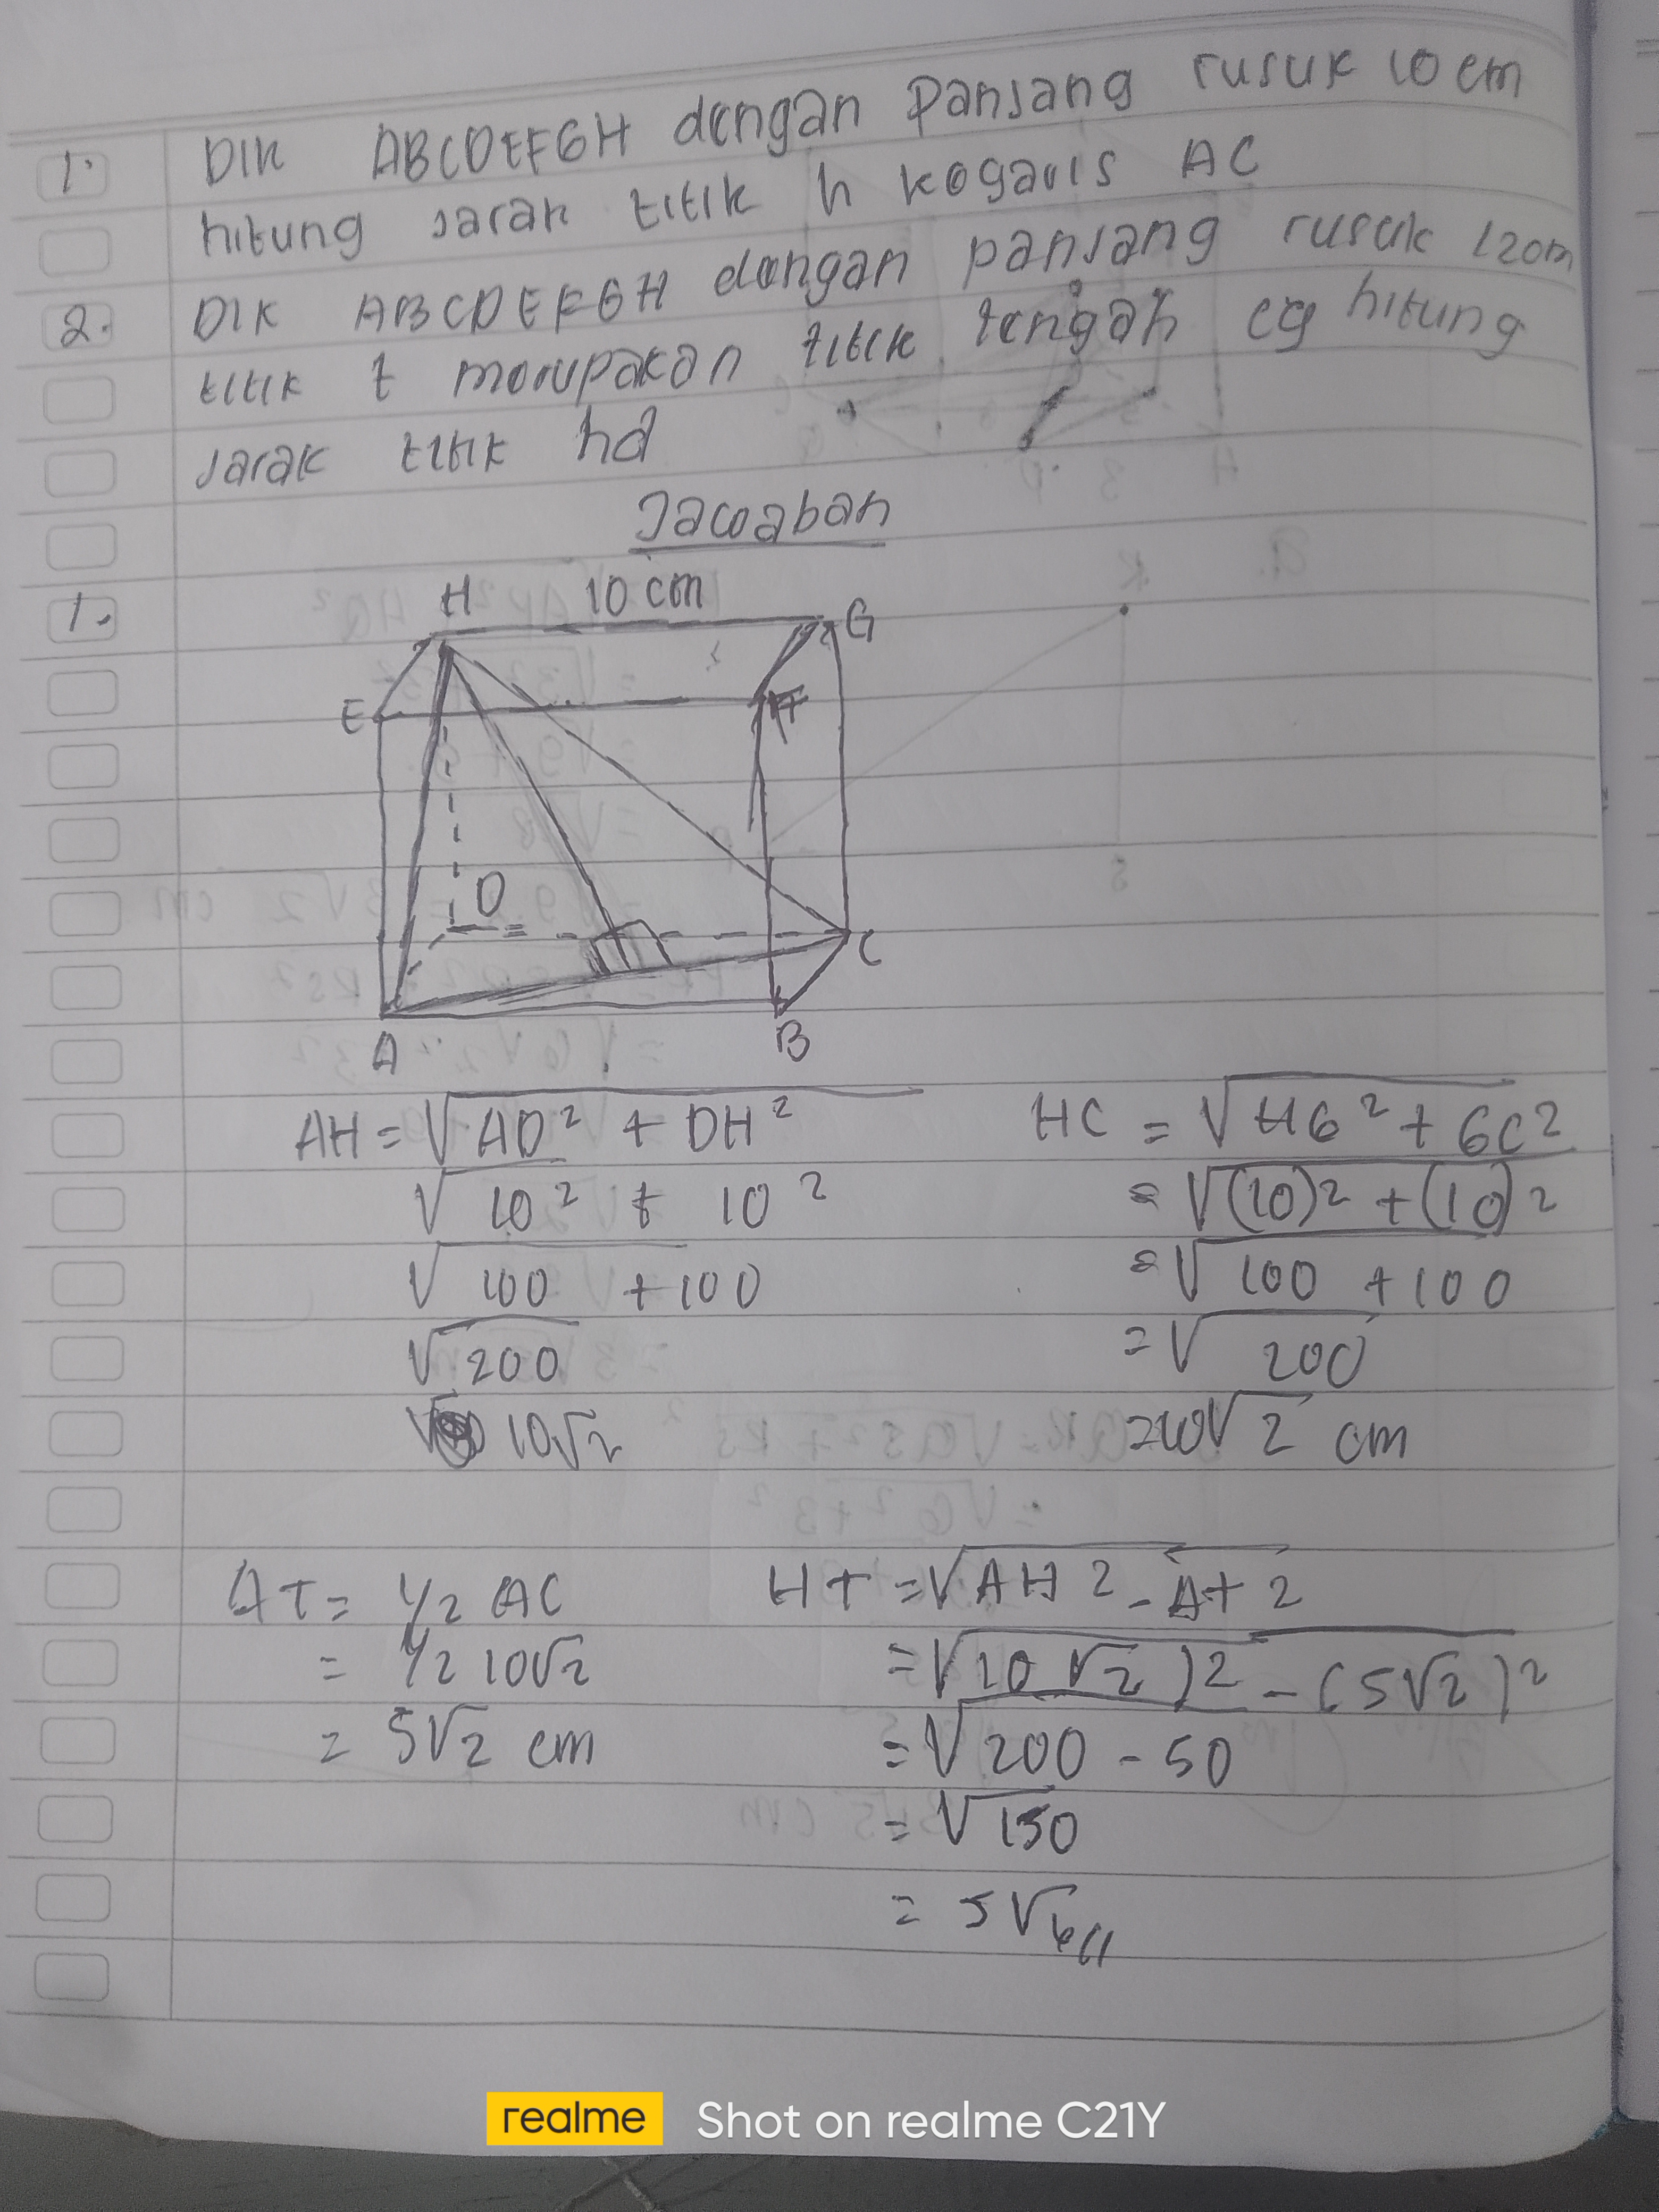 1. DIK ABCDEFGH dengan Panjang rusuk 10 cm
hitung jarak titik h kegaris AC
2. DIK ABCDEFGH dengan panjang rusuk 12cm
titik t merupakan titik tengah cg hitung
jarak titik hd
Jawaban
1.
H 10 cm G
E F
D
C
A B
AH = √AD² + DH² HC = √HG² + GC²
√10² + 10² = √(10)² + (10)²
√100 + 100 = √100 + 100
√200 = √200
10√2 = 10√2 cm
AT = 1/2 AC HT = √AH² - AT²
= 1/2 10√2 = √10√2)² - (5√2)²
= 5√2 cm = √200 - 50
= √150
= 5√6//
realme Shot on realme C21Y